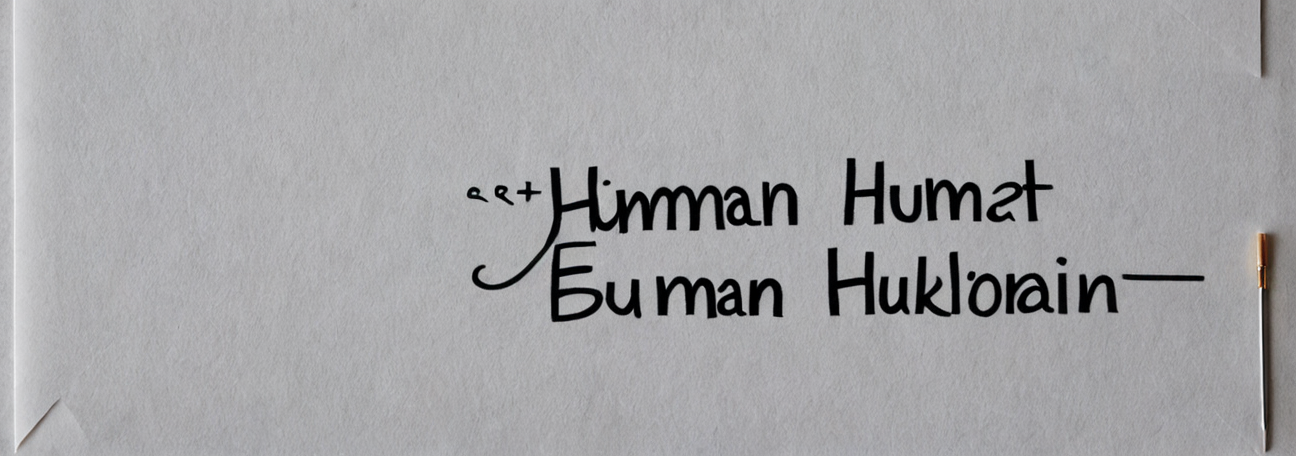 Himman Humat
Euman Huklorain